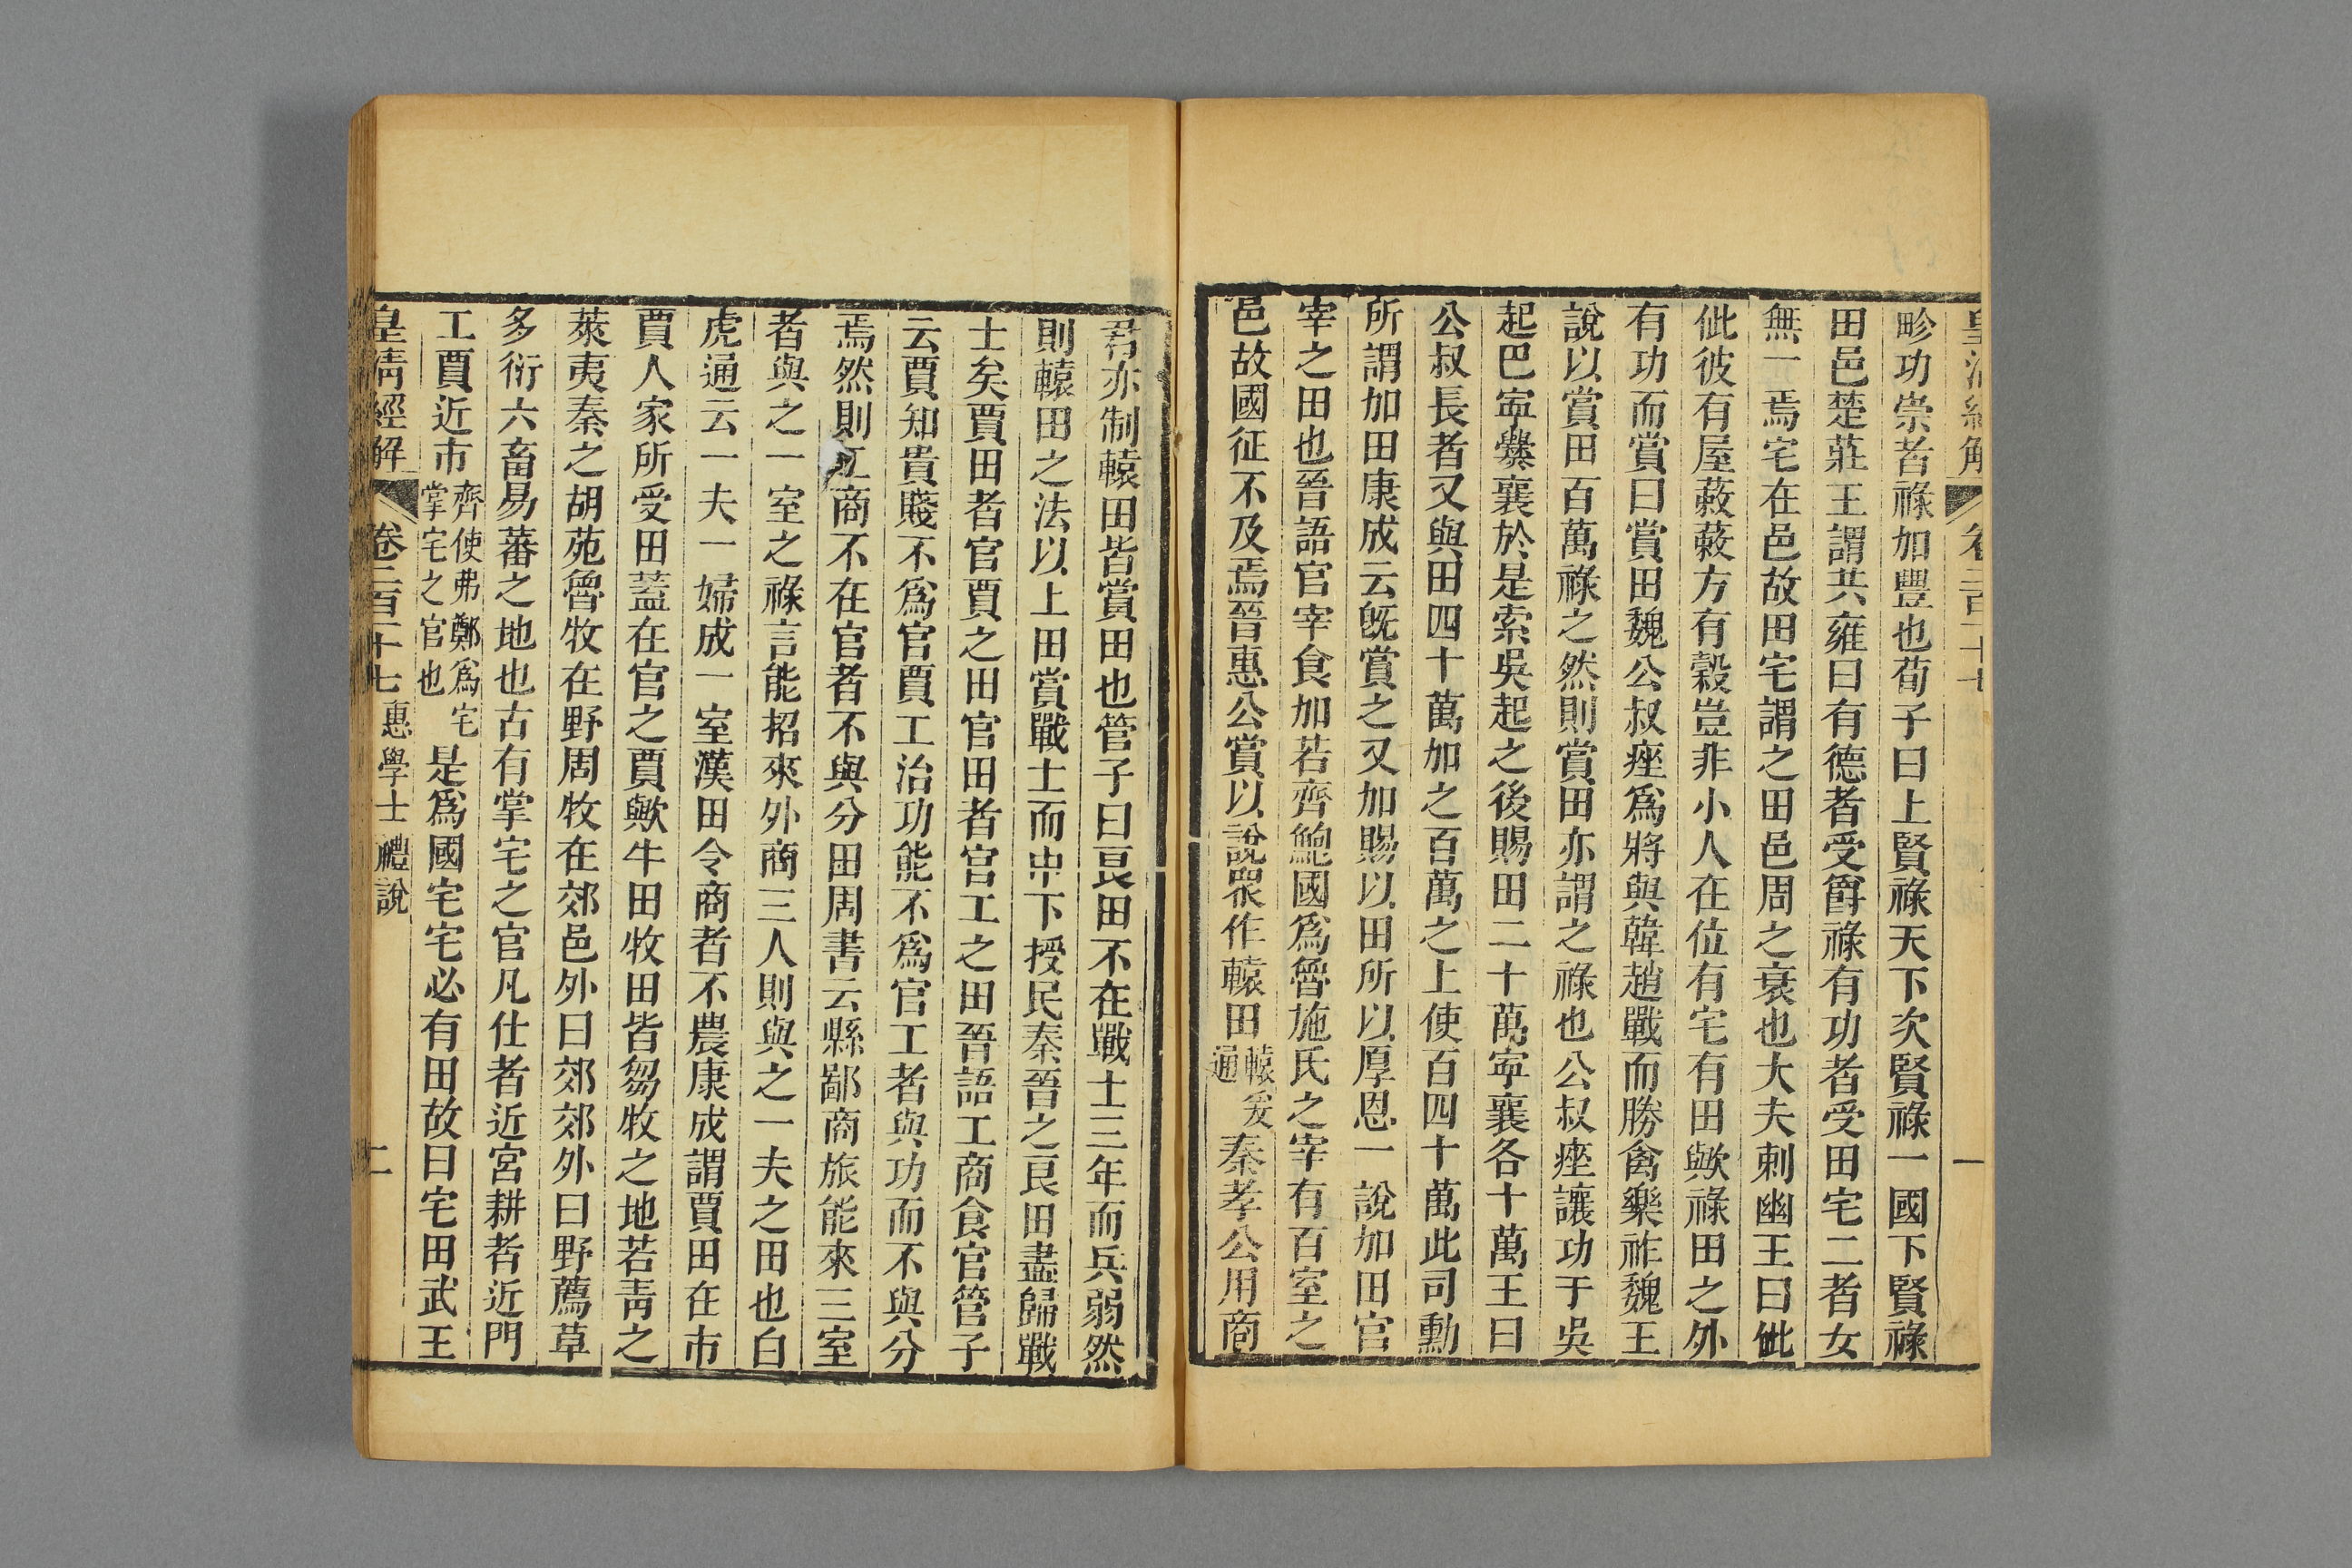 皇清經解 卷二百二十七 一
畛功崇者祿加豐也荀子曰上賢祿天下次賢祿一國下賢祿
田邑楚莊王謂共雍曰有德者受爵祿有功者受田宅二者女
無一焉宅在邑故田宅謂之田邑周之衰也大夫刺幽王曰佌
佌彼有屋蔌蔌方有穀豈非小人在位有宅有田歟祿田之外
有功而賞曰賞田魏公叔痤爲將與韓趙戰而勝禽樂祚魏王
說以賞田百萬祿之然則賞田亦謂之祿也公叔痤讓功于吳
起巴寕爨襄於是索吳起之後賜田二十萬寕襄各十萬王曰
公叔長者又與田四十萬加之百萬之上使百四十萬此司勳
所謂加田康成云旣賞之又加賜以田所以厚恩一說加田官
宰之田也晉語官宰食加若齊鮑國爲魯施氏之宰有百室之
邑故國征不及焉晉惠公賞以說眾作轅田轅爰通秦孝公用商
君亦制轅田皆賞田也管子曰良田不在戰士三年而兵弱然
則轅田之法以上田賞戰士而中下授民秦晉之良田盡歸戰
士矣賈田者官賈之田官田者官工之田晉語工商食官管子
云賈知貴賤不爲官賈工治功能不爲官工者與功而不與分
焉然則工商不在官者不與分田周書云縣鄙商旅能來三室
者與之一室之祿言能招來外商三人則與之一夫之田也白
虎通云一夫一婦成一室漢田令商者不農康成謂賈田在市
賈人家所受田蓋在官之賈歟牛田牧田皆芻牧之地若靑之
萊夷秦之胡苑魯牧在野周牧在郊邑外曰郊郊外曰野薦草
多衍六畜易蕃之地也古有掌宅之官凡仕者近宮耕者近門
工賈近市齊使弗鄭爲宅掌宅之官也是爲國宅宅必有田故曰宅田武王
皇清經解 卷二百二十七 惠學士禮說 二